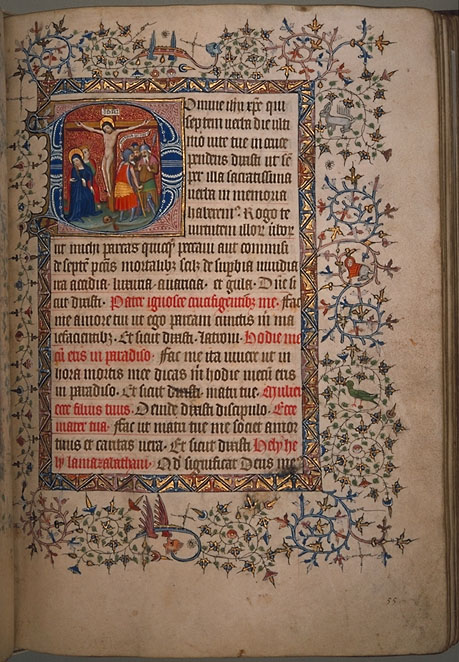 INRI
Domine ihu xpe qui
septem verba die ulti
mo vite tue in cruce
pendens dixisti ut sem
per illa sacratissima
verba in memoria
haberem. Rogo te
virtutem illorum
ut michi parcas quicquid peccavi aut commisi
de septem peccatis mortalibus scilicet de superbia invidia
ira accidia luxuria avaricia et gula. Domine si
cut dixisti. Pater ignosce crucifigentibus me. ffac
me amore tui ut ego parcam cunctis in ma
lefacientibus. Et sicut dixisti latroni. Hodie me
cum eris in paradiso. ffac me ita vivere ut in
hora mortis mee dicas in hodie mecum eris
in paradiso. Et sicut dixisti matri tue. Mulier
ecce filius tuus. Deinde dixisti discipulo. Ecce
mater tua. ffac ut matri tue me societ amor
tuus et caritas vera. Et sicut dixisti Hely he
ly lamazabathani. Qd significat Deus me
55